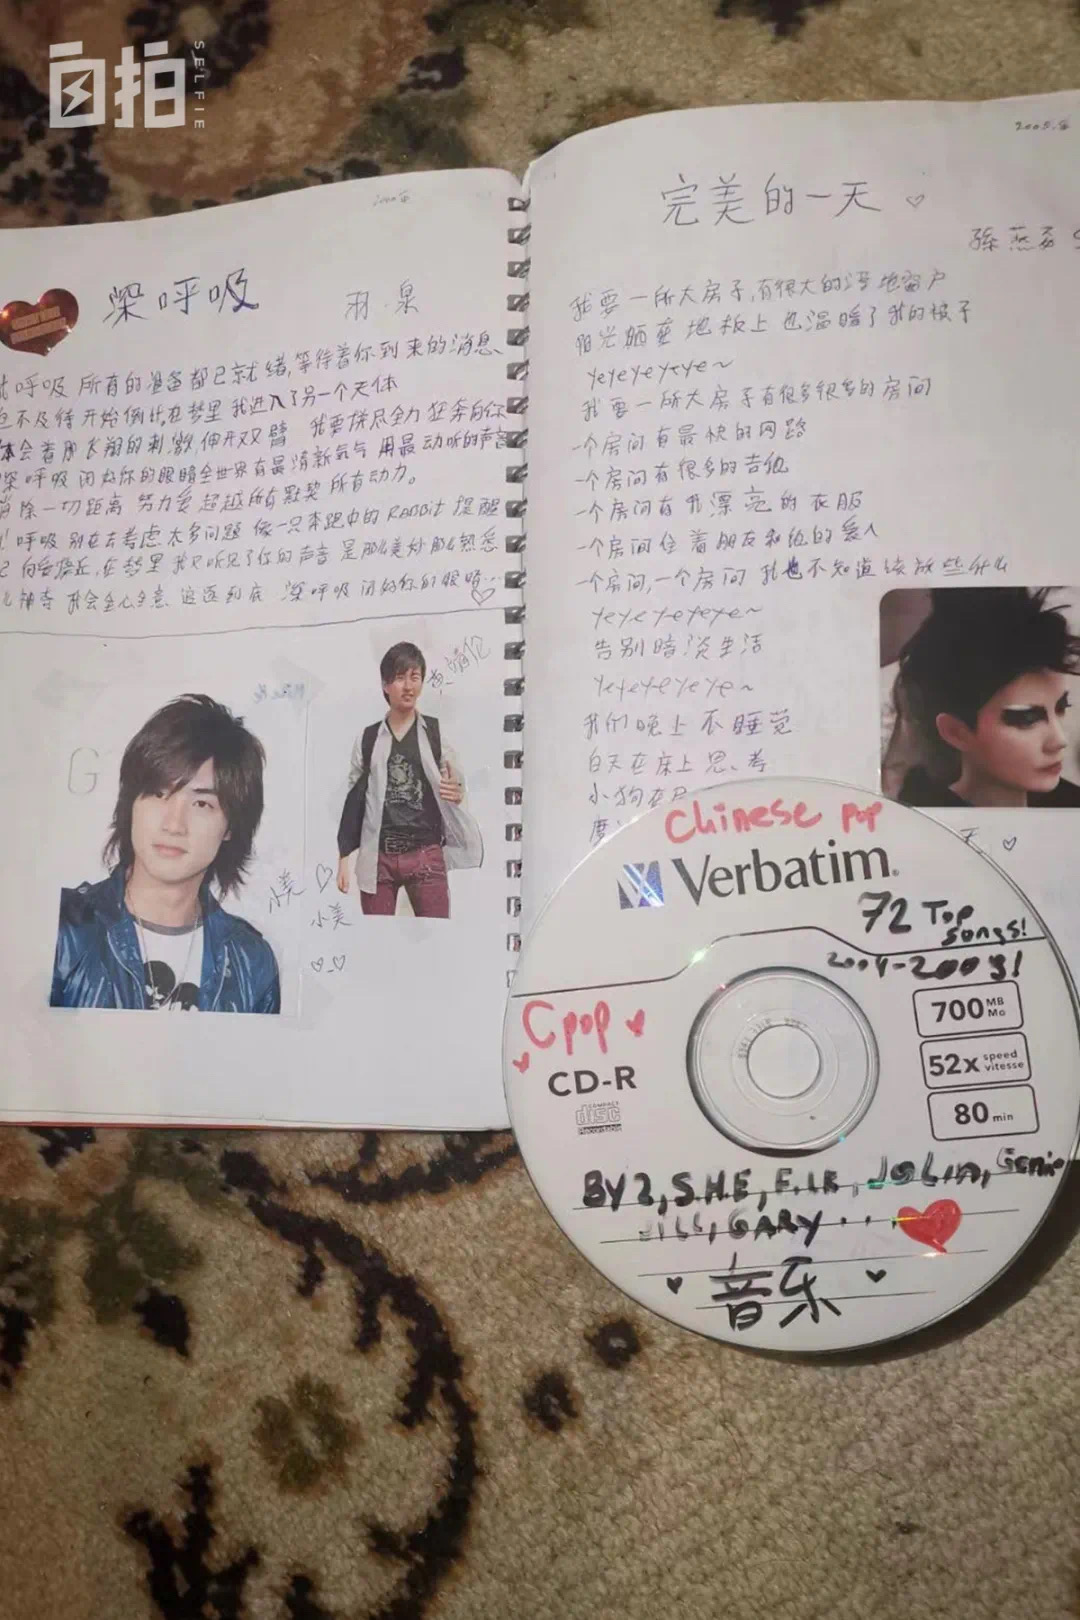 自拍
SELFIE
深呼吸
羽·泉
呼吸 所有的准备都已就绪,等待着你到来的消息、
不及待 开始倒计,在梦里 我进入了另一个天体
体会着那飞翔的刺激,伸开双臂 我要拼尽全力 狂奔向你
深呼吸 闭好你的眼睛全世界有最清新氧气 用最动听的声音
消除一切距离 努力爱 超越所有默契 所有动力。
呼吸 别在去考虑太多问题 像一只奔跑中的RABBIT 提醒
向爱靠近,在梦里 我只听见了你的声音 是那么美妙那么熟悉
我会全心全意 追逐到底 深呼吸 闭好你的眼睛…
小美
小美
2005.
完美的一天
孫燕姿
我要一所大房子,有很大的落地窗户
阳光洒在地板上 也温暖了我的被子
yeyeyeyeye~
我要一所大房子有很多很多的房间
一个房间有最快的网路
一个房间有很多的吉他
一个房间有我漂亮的衣服
一个房间住着朋友和他的爱人
一个房间,一个房间 我也不知道该放些什么
yeyeyeyeyeye~
告别暗淡生活
yeyeyeyeyeye~
我们晚上不睡觉
白天在床上思考
小狗在
天
Chinese pop
Verbatim
72 Top
songs!
2004-2009!
Cpop
CD-R
COMPACT
disc
Recordable
700 MB
Mo
52x speed
vitesse
80 min
BY2, S.H.E, F.I.R, JOLIN, Genie
JILL, GARY...
音乐